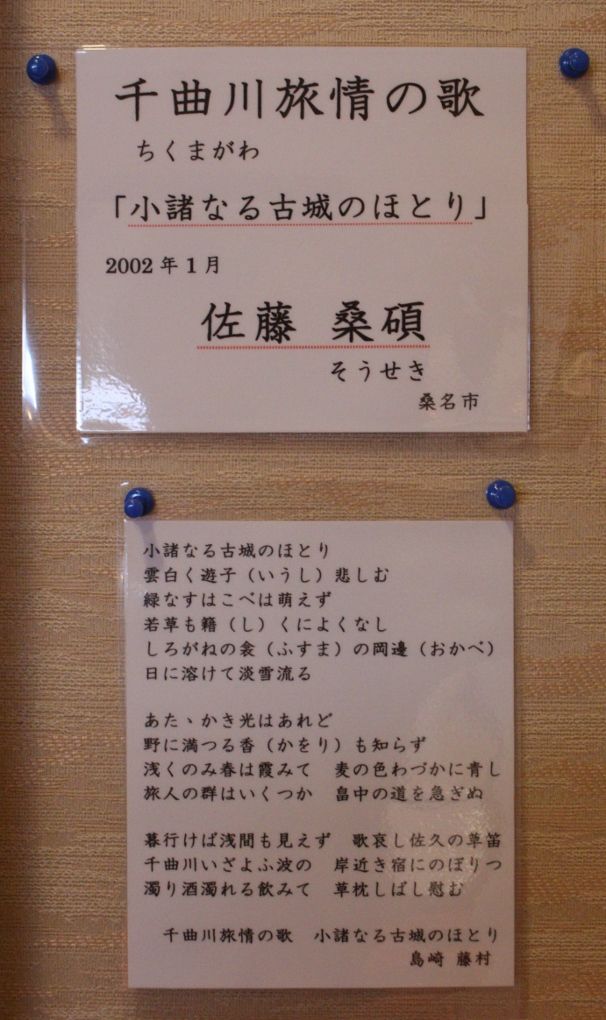 千曲川旅情の歌
ちくまがわ
「小諸なる古城のほとり」
2002年1月
佐藤 桑碩
そうせき
桑名市
小諸なる古城のほとり
雲白く遊子（いうし）悲しむ
緑なすはこべは萌えず
若草も籍（し）くによくなし
しろがねの衾（ふすま）の岡邊（おかべ）
日に溶けて淡雪流る
あたゝかき光はあれど
野に満つる香（かをり）も知らず
浅くのみ春は霞みて　麦の色わづかに青し
旅人の群はいくつか　畠中の道を急ぎぬ
暮行けば浅間も見えず　歌哀し佐久の草笛
千曲川いざよふ波の　岸近き宿にのぼりつ
濁り酒濁れる飲みて　草枕しばし慰む
千曲川旅情の歌　小諸なる古城のほとり
島崎 藤村